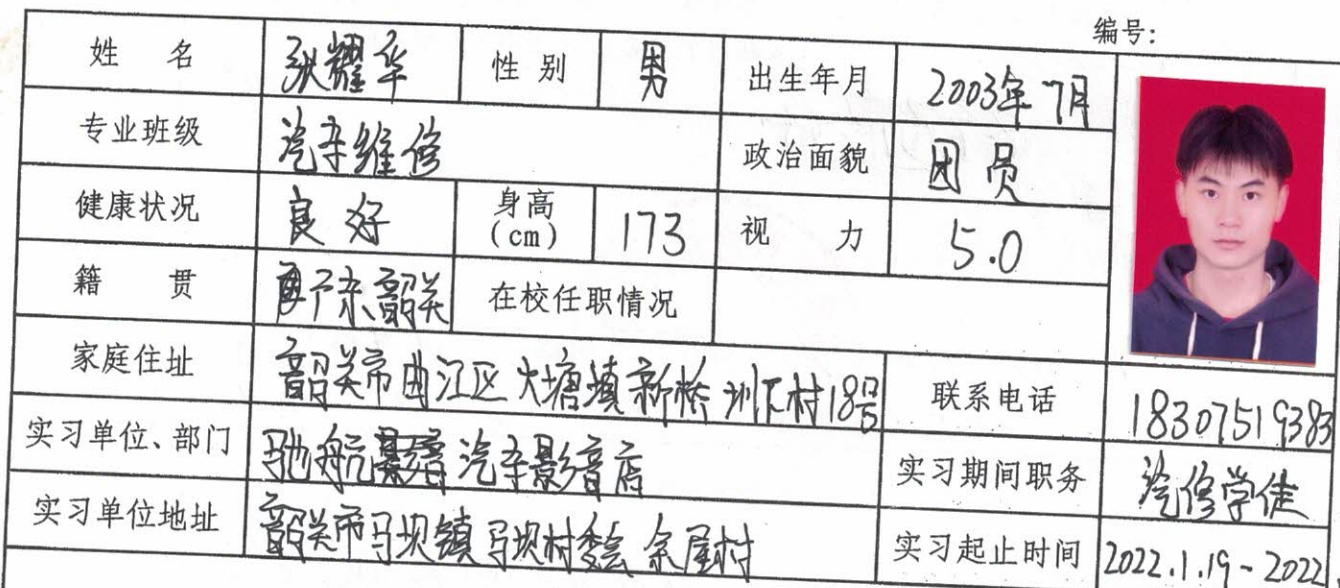 编号:
姓 名 耀华 性别 男 出生年月 2003年7月
专业班级 汽车维修 政治面貌 团员
健康状况 良好 身高(cm) 173 视 力 5.0
籍 贯 广东韶关 在校任职情况
家庭住址 韶关市曲江区大塘镇新桥圳下村18号 联系电话 18307519383
实习单位、部门 驰航汽车影音店 实习期间职务 汽修学徒
实习单位地址 韶关市马坝镇马坝村委会余屋村 实习起止时间 2022.1.19-2022